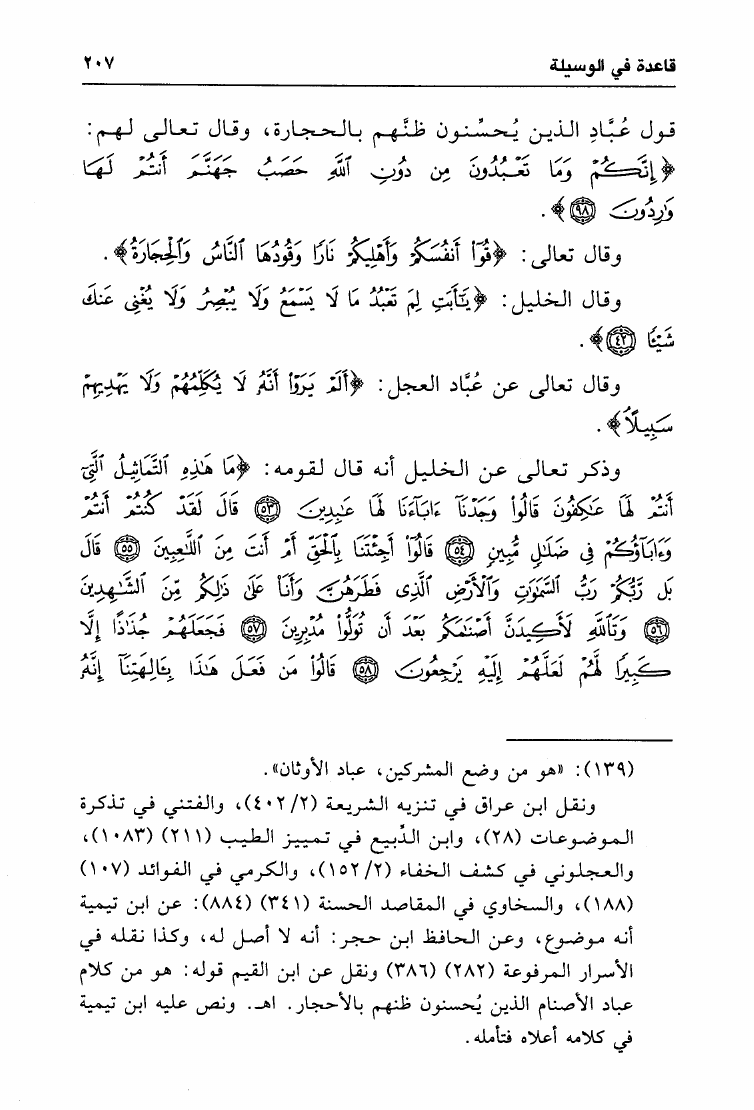 قاعدة في الوسيلة
٢٠٧
قول عُبَّادِ الذين يُحسِّنون ظنَّهم بالحجارة، وقال تعالى لهم:
﴿إِنَّكُمْ وَمَا تَعْبُدُونَ مِن دُونِ ٱللَّهِ حَصَبُ جَهَنَّمَ أَنتُمْ لَهَا
وَٰرِدُونَ ٩٨﴾.
وقال تعالى: ﴿قُوٓا۟ أَنفُسَكُمْ وَأَهْلِيكُمْ نَارًا وَقُودُهَا ٱلنَّاسُ وَٱلْحِجَارَةُ﴾.
وقال الخليل: ﴿يَٰٓأَبَتِ لِمَ تَعْبُدُ مَا لَا يَسْمَعُ وَلَا يُبْصِرُ وَلَا يُغْنِى عَنكَ
شَيْـًٔا ٤٢﴾.
وقال تعالى عن عُبَّاد العجل: ﴿أَلَمْ يَرَوْا۟ أَنَّهُۥ لَا يُكَلِّمُهُمْ وَلَا يَهْدِيهِمْ
سَبِيلًاۘ﴾.
وذكر تعالى عن الخليل أنه قال لقومه: ﴿مَا هَٰذِهِ ٱلتَّمَاثِيلُ ٱلَّتِىٓ
أَنتُمْ لَهَا عَٰكِفُونَ قَالُوا۟ وَجَدْنَآ ءَابَآءَنَا لَهَا عَٰبِدِينَ ٥٣ قَالَ لَقَدْ كُنتُمْ أَنتُمْ
وَءَابَآؤُكُمْ فِى ضَلَٰلٍ مُّبِينٍ ٥٤ قَالُوٓا۟ أَجِئْتَنَا بِٱلْحَقِّ أَمْ أَنتَ مِنَ ٱللَّٰعِبِينَ ٥٥ قَالَ
بَل رَّبُّكُمْ رَبُّ ٱلسَّمَٰوَٰتِ وَٱلْأَرْضِ ٱلَّذِى فَطَرَهُنَّ وَأَنَا۠ عَلَىٰ ذَٰلِكُم مِّنَ ٱلشَّٰهِدِينَ
٥٦ وَتَٱللَّهِ لَأَكِيدَنَّ أَصْنَٰمَكُم بَعْدَ أَن تُوَلُّوا۟ مُدْبِرِينَ ٥٧ فَجَعَلَهُمْ جُذَٰذًا إِلَّا
كَبِيرًا لَّهُمْ لَعَلَّهُمْ إِلَيْهِ يَرْجِعُونَ ٥٨ قَالُوا۟ مَن فَعَلَ هَٰذَا بِـَٔالِهَتِنَآ إِنَّهُۥ
(١٣٩): «هو من وضع المشركين، عباد الأوثان».
ونقل ابن عراق في تنزيه الشريعة (٤٠٢/٢)، والفتني في تذكرة
الموضوعات (٢٨)، وابن الدِّيبع في تمييز الطيب (٢١١) (١٠٨٣)،
والعجلوني في كشف الخفاء (١٥٢/٢)، والكرمي في الفوائد (١٠٧)
(١٨٨)، والسخاوي في المقاصد الحسنة (٣٤١) (٨٨٤): عن ابن تيمية
أنه موضوع، وعن الحافظ ابن حجر: أنه لا أصل له، وكذا نقله في
الأسرار المرفوعة (٢٨٢) (٣٨٦) ونقل عن ابن القيم قوله: هو من كلام
عباد الأصنام الذين يُحسنون ظنهم بالأحجار. اهـ. ونص عليه ابن تيمية
في كلامه أعلاه فتأمله.